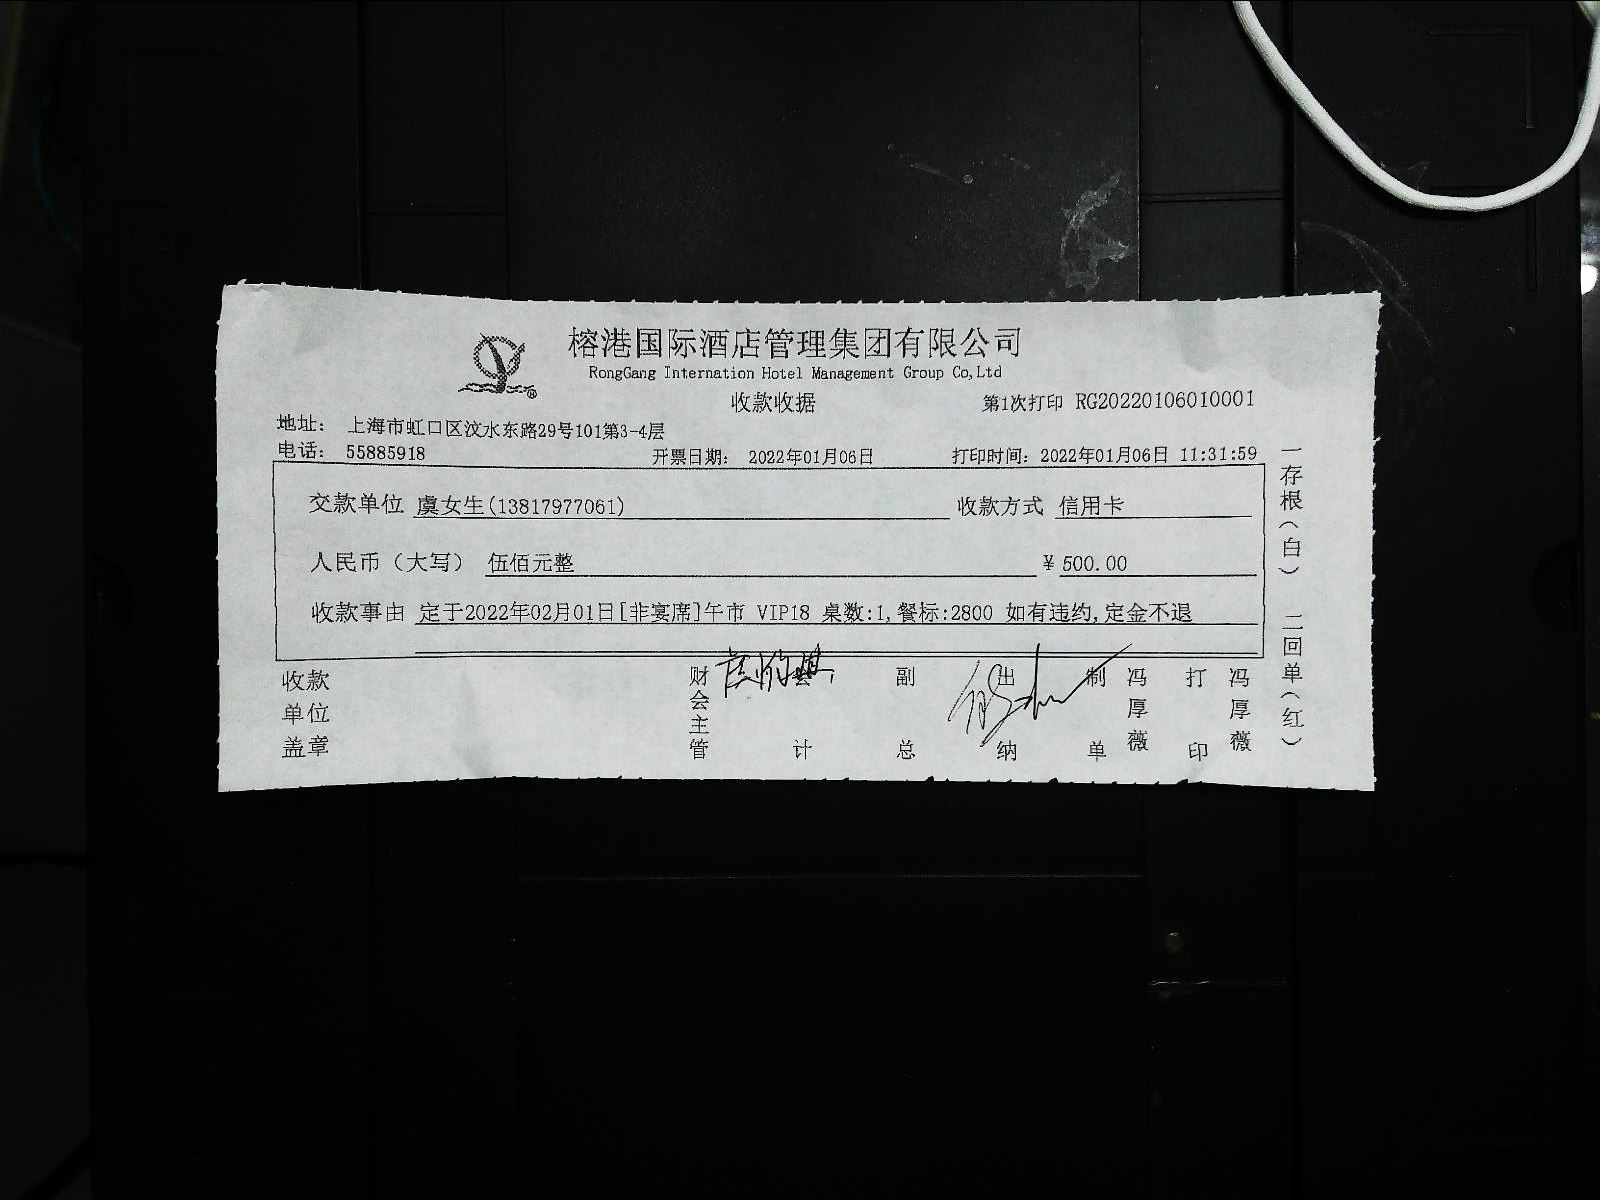 榕港国际酒店管理集团有限公司
RongGang Internation Hotel Management Group Co,Ltd
收款收据
第1次打印 RG20220106010001
地址： 上海市虹口区汶水东路29号101第3-4层
电话： 55885918
开票日期： 2022年01月06日
打印时间：2022年01月06日 11:31:59
交款单位 虞女生(13817977061)
收款方式 信用卡
人民币（大写） 伍佰元整
¥ 500.00
收款事由 定于2022年02月01日[非宴席]午市 VIP18 桌数:1,餐标:2800 如有违约,定金不退
收款单位盖章
财会主管
会计
副总
出纳
制单
冯厚薇
打印
冯厚薇
一存根（白） 二回单（红）